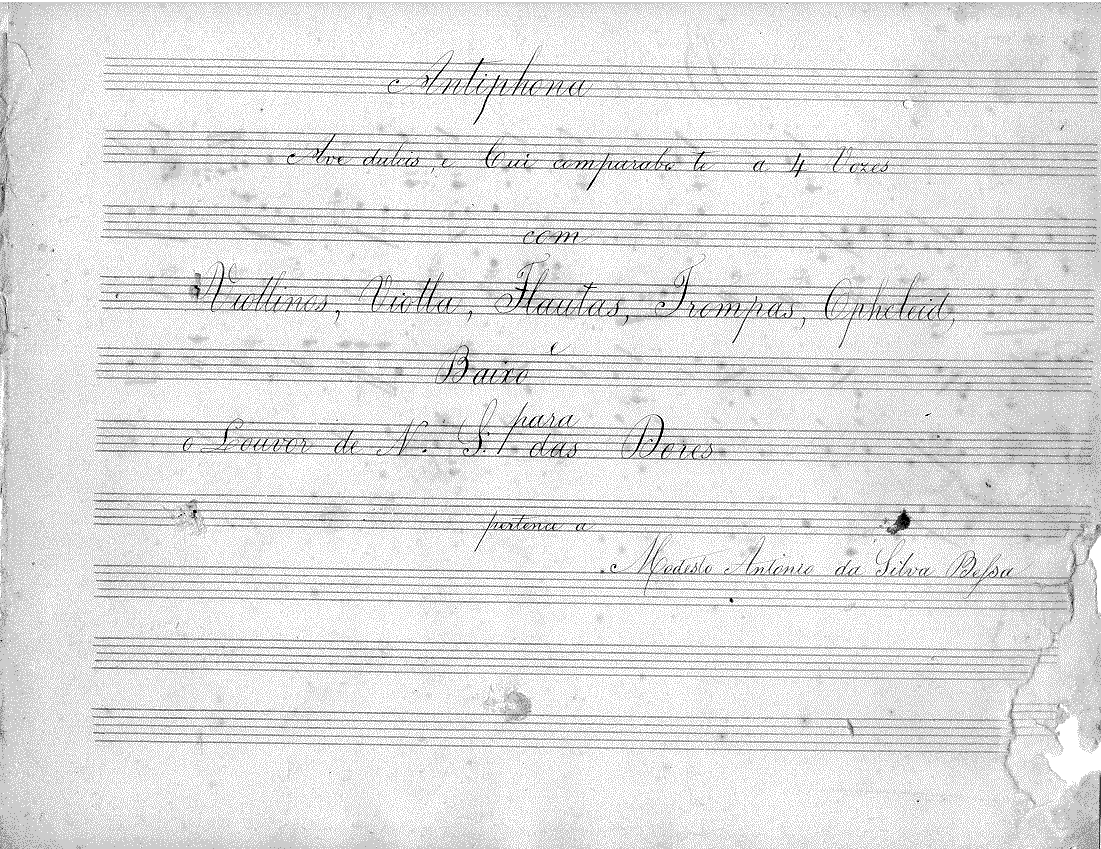 Antiphona
Ave dulcis, e Cui comparabo te a 4 Vozes
com
Viollinos, Viólla, Flautas, Trompas, Opheleid,
e
Baixo
para
o Louvor de N. S. das Dores
pertence a
Modesto Antonio da Silva Bessa